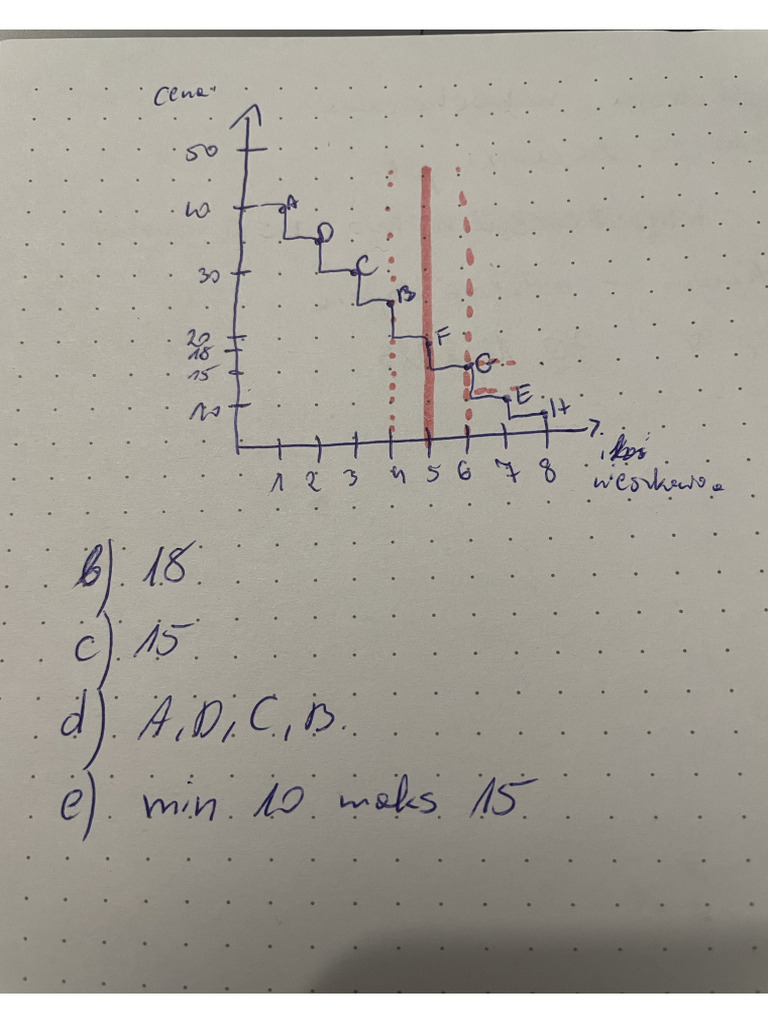 Cena
50
40
A
D
30
C
B
20
F
18
G
15
E
10
H
1 2 3 4 5 6 7 8
b) 18
c) 15
d) A, D, C, B.
e) min 10 maks 15